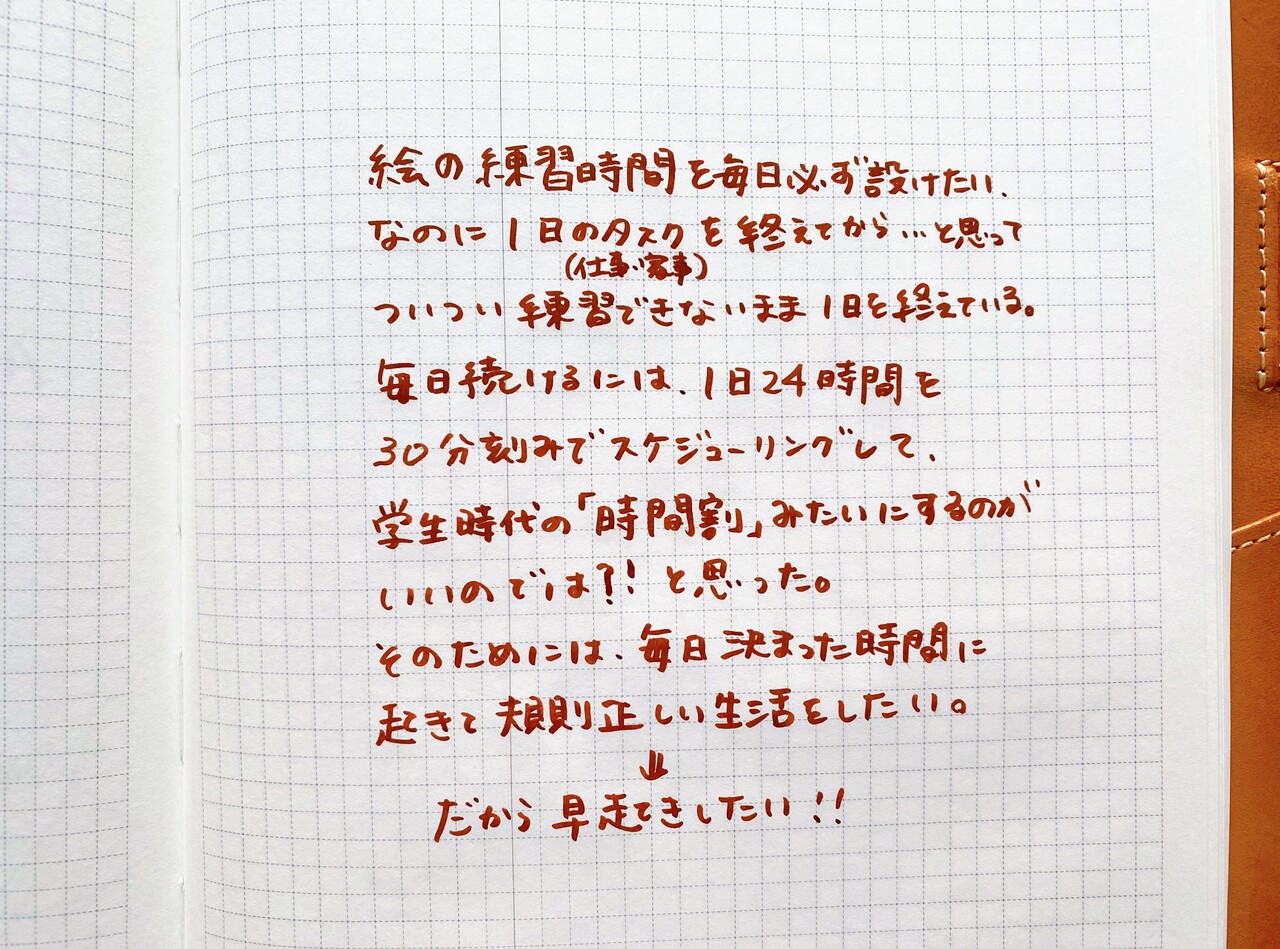 絵の練習時間を毎日必ず設けたい、
なのに1日のタスクを終えてから…と思って
(仕事や家事)
ついつい練習できないまま1日を終えている。
毎日続けるには、1日24時間を
30分刻みでスケジューリングして、
学生時代の「時間割」みたいにするのが
いいのでは?!と思った。
そのためには、毎日決まった時間に
起きて規則正しい生活をしたい。
↓
だから早起きしたい!!